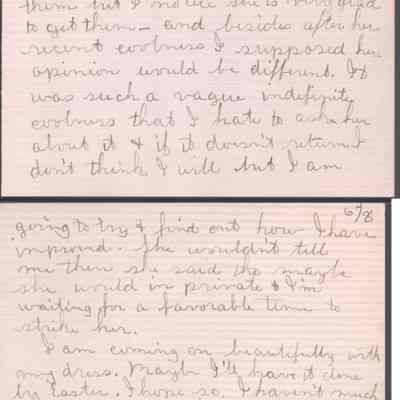 them but I notice she is very glad
to get them – and besides after her
recent coolness I supposed her
opinion would be different. It
was such a vague indefinite
coolness that I hate to ask her
about it & if it doesn't return I
don't think I will but I am
6/8
going to try & find out how I have
improved. She wouldn't tell
me then she said tho maybe
she would in private & I'm
waiting for a favorable time to
strike her.
I am coming on beautifully with
my dress. Maybe I'll have it done
by Easter. I hope so. I haven't much